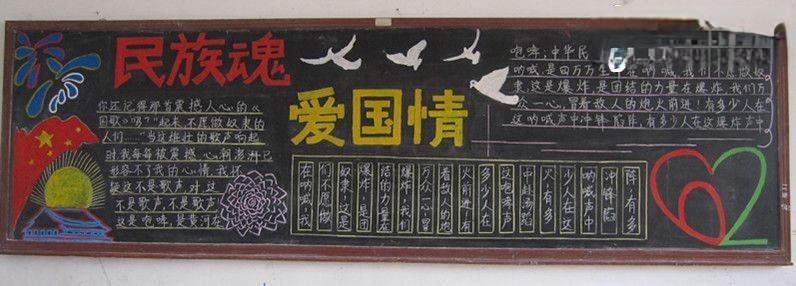 民族魂
爱国情
你还记得那首震撼人心的《
国歌》吗?"起来,不愿做奴隶的
人们……"当这雄壮的歌声响起
时我每每被震撼,心利澎湃已
形容不了我的心情,我怀
疑这不是歌声,对,这
不是歌声,不是歌声,
这是咆哮,是黄河在
咆哮,中华民
呐喊,是四万万生
在呐喊,我们不愿做奴
隶,这是爆炸,是团结的力量在爆炸,我们万
众一心,冒着敌人的炮火前进!有多少人在
这呐喊声中冲锋陷阵,有多少人在这爆炸声中
阵,有多
冲锋陷
呐喊声中
少人在这
火,有多
中赴汤蹈
这咆哮声
多少人在
火前进!有
着敌人的炮
万众一心冒
爆炸,我们
结的力量在
爆炸,是团
奴隶,这是
们不愿做
在呐喊,我
62